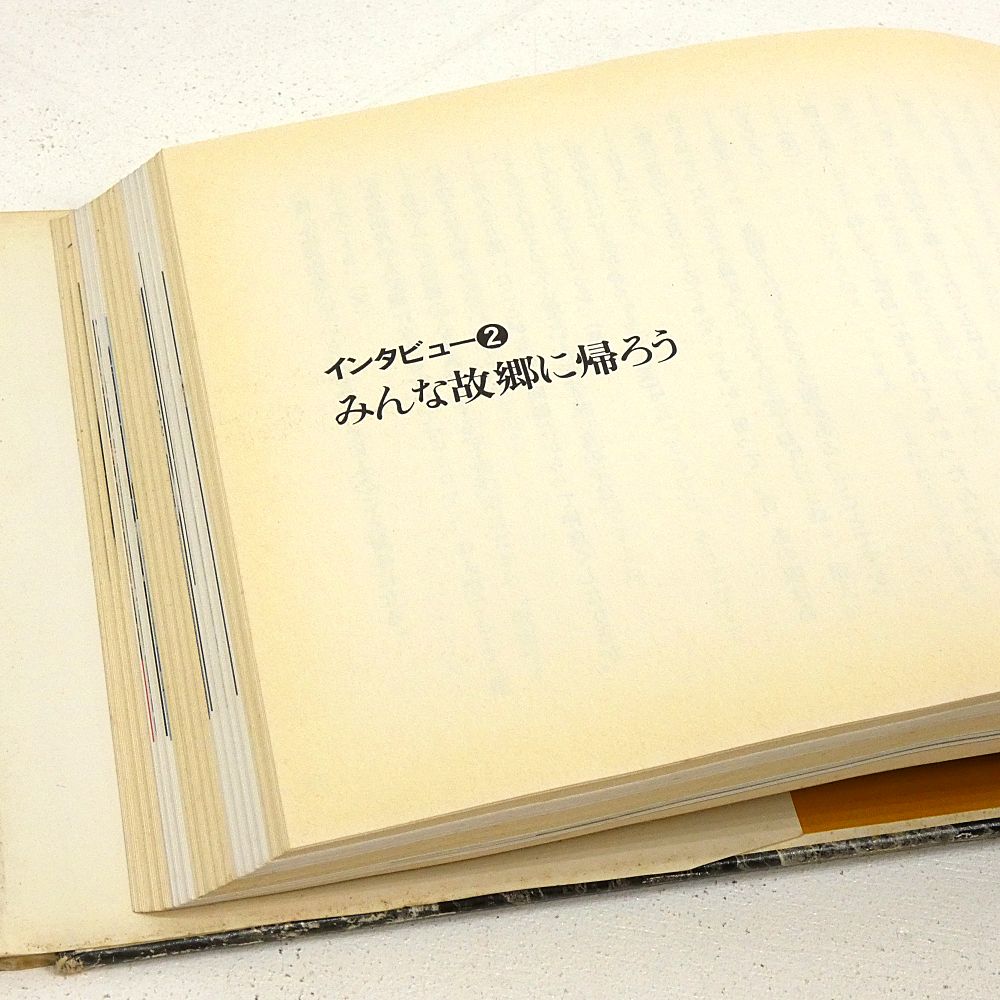 インタビュー❷
みんな故郷に帰ろう